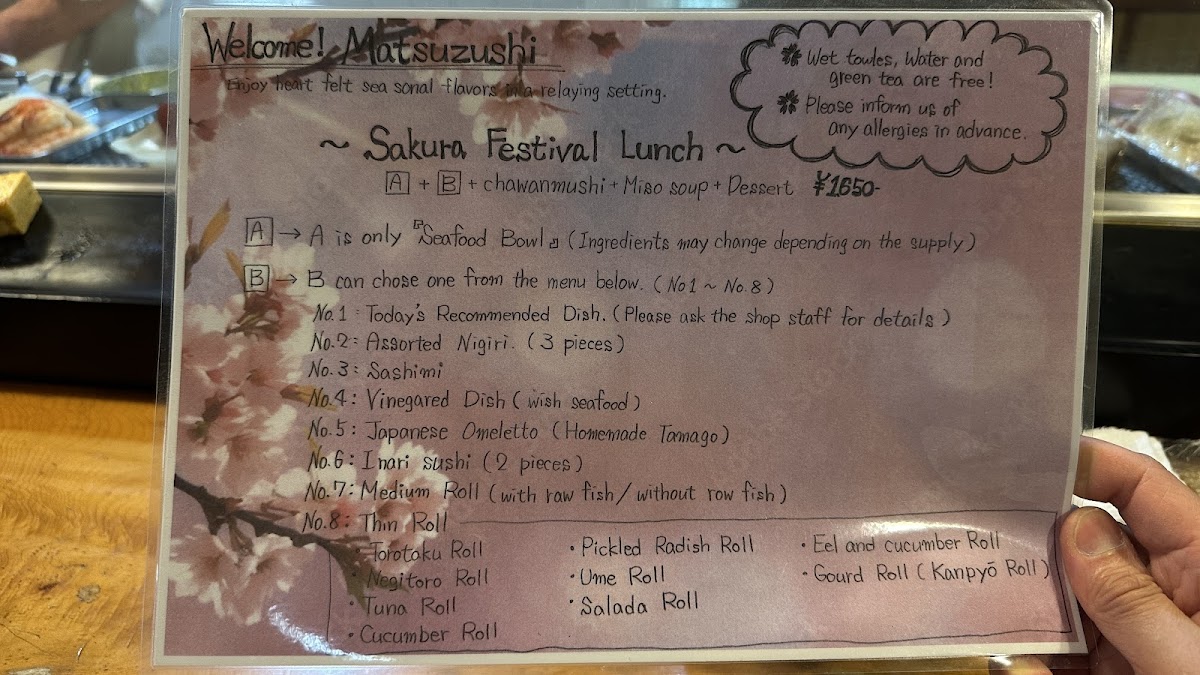 Welcome! Matsuzushi
Enjoy heart felt sea sonal flavors in a relaying setting.
✽ Wet towles, Water and
green tea are free!
✽ Please inform us of
any allergies in advance.
~ Sakura Festival Lunch ~
A + B + chawanmushi + Miso soup + Dessert ¥1650-
A → A is only 『Seafood Bowl』 (Ingredients may change depending on the supply)
B → B can chose one from the menu below. (No1 ~ No.8)
No.1: Today's Recommended Dish. (Please ask the shop staff for details)
No.2: Assorted Nigiri. (3 pieces)
No.3: Sashimi
No.4: Vinegared Dish (wish seafood)
No.5: Japanese Omeletto (Homemade Tamago)
No.6: Inari sushi (2 pieces)
No.7: Medium Roll (with raw fish/without row fish)
No.8: Thin Roll
・Torotaku Roll
・Negitoro Roll
・Tuna Roll
・Cucumber Roll
・Pickled Radish Roll
・Ume Roll
・Salada Roll
・Eel and cucumber Roll
・Gourd Roll (Kanpyō Roll)